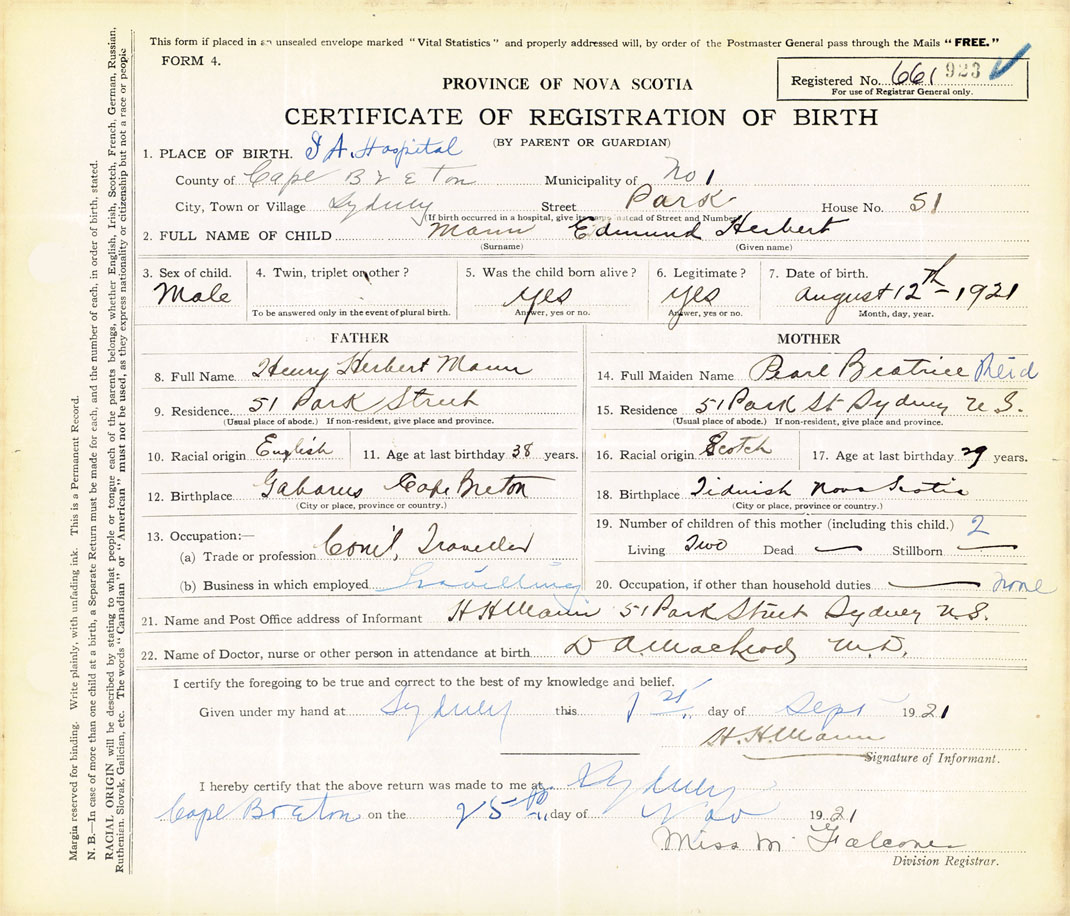 This form if placed in an unsealed envelope marked "Vital Statistics" and properly addressed will, by order of the Postmaster General pass through the Mails "FREE."
FORM 4.
Registered No. 661 923
For use of Registrar General only.
PROVINCE OF NOVA SCOTIA
CERTIFICATE OF REGISTRATION OF BIRTH
(BY PARENT OR GUARDIAN)
1. PLACE OF BIRTH. Hospital
County of Cape Breton Municipality of No 1
City, Town or Village Sydney Street Park House No. 51
(If birth occurred in a hospital, give its name instead of Street and Number)
2. FULL NAME OF CHILD Mann Edmund Herbert
(Surname) (Given name)
3. Sex of child. 4. Twin, triplet or other? 5. Was the child born alive? 6. Legitimate? 7. Date of birth.
Male Yes Yes August 12th - 1921
To be answered only in the event of plural birth. Answer, yes or no. Answer, yes or no. Month, day, year.
FATHER
8. Full Name Henry Herbert Mann
9. Residence 51 Park Street
(Usual place of abode.) If non-resident, give place and province.
10. Racial origin English 11. Age at last birthday 38 years.
12. Birthplace Gabarus Cape Breton
(City or place, province or country.)
13. Occupation:—
(a) Trade or profession Com'l, Traveller
(b) Business in which employed Travelling
MOTHER
14. Full Maiden Name Pearl Beatrice Reid
15. Residence 51 Park St Sydney N.S.
(Usual place of abode.) If non-resident, give place and province.
16. Racial origin Scotch 17. Age at last birthday 29 years.
18. Birthplace Tidnish Nova Scotia
(City or place, province or country.)
19. Number of children of this mother (including this child.) 2
Living Two Dead — Stillborn —
20. Occupation, if other than household duties — none
21. Name and Post Office address of Informant H H Mann 51 Park Street Sydney N.S.
22. Name of Doctor, nurse or other person in attendance at birth D A. MacLeod M.D.
I certify the foregoing to be true and correct to the best of my knowledge and belief.
Given under my hand at Sydney this 1st day of Sept 1921
H. H. Mann
Signature of Informant.
I hereby certify that the above return was made to me at Sydney
Cape Breton on the 25th day of Nov 1921
Miss M Falconer
Division Registrar.
Margin reserved for binding. Write plainly, with unfading ink. This is a Permanent Record.
N. B.—In case of more than one child at a birth, a Separate Return must be made for each, and the number of each, in order of birth, stated.
RACIAL ORIGIN will be described by stating to what people or tongue each of the parents belongs, whether English, Irish, Scotch, French, German, Russian,
Ruthenian, Slovak, Galician, etc. The words "Canadian" or "American" must not be used, as they express nationality or citizenship but not a race or people